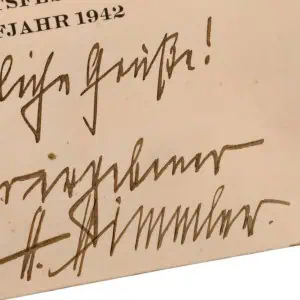 TSFES
FJAHR 1942
liche Grüße!
ergebener
H. Himmler.